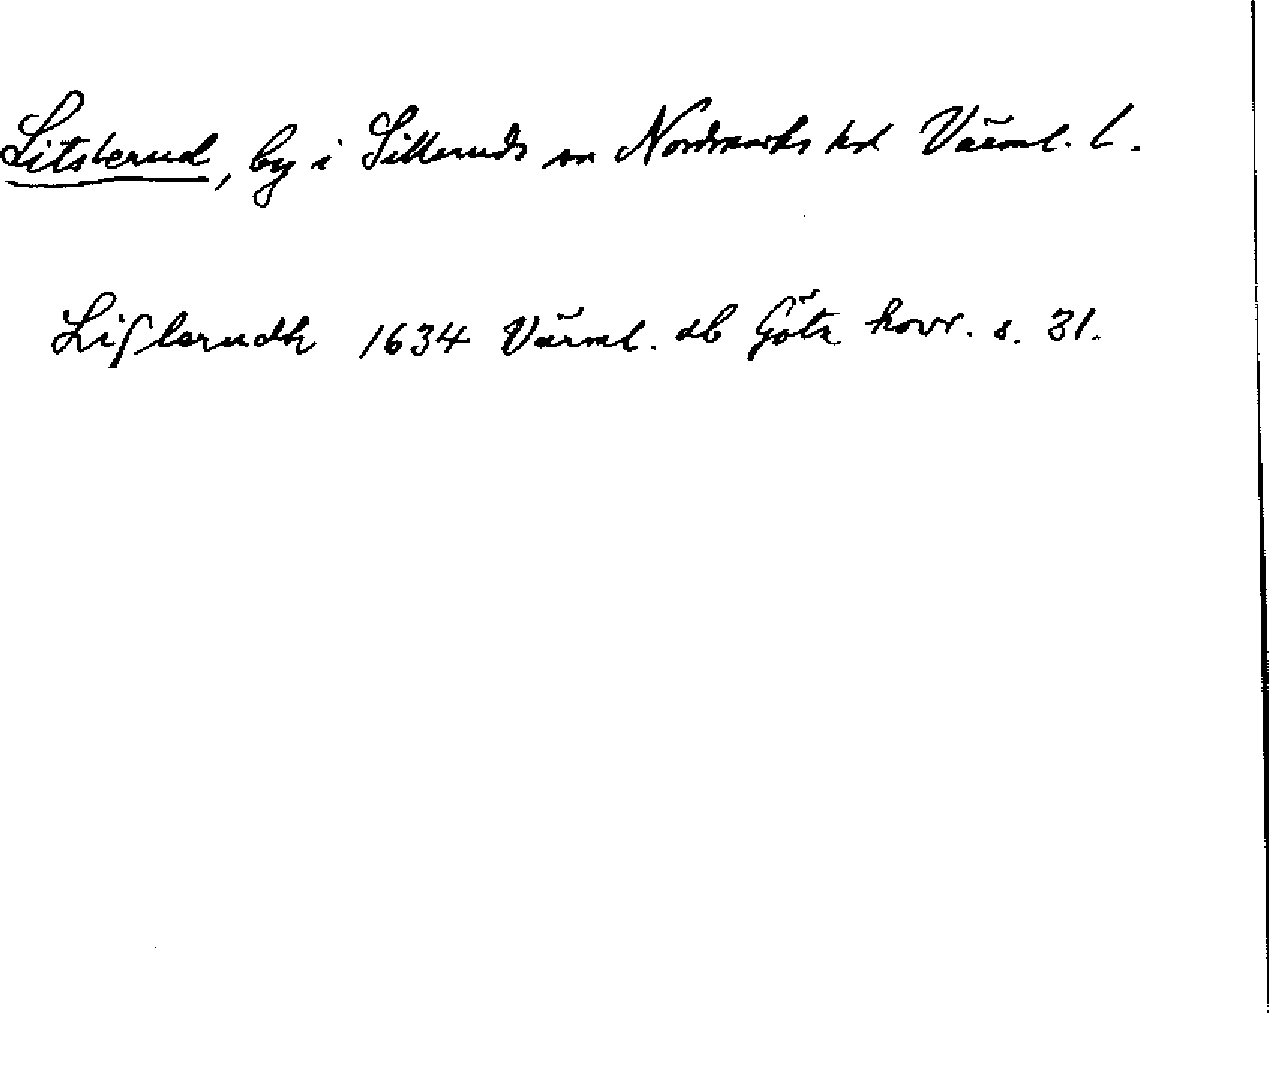 Litslerud, by i Silleruds sn Nordmarks hd Värml. l.
Lißlerudh 1634 Värml. db Göta hovr. s. 31.